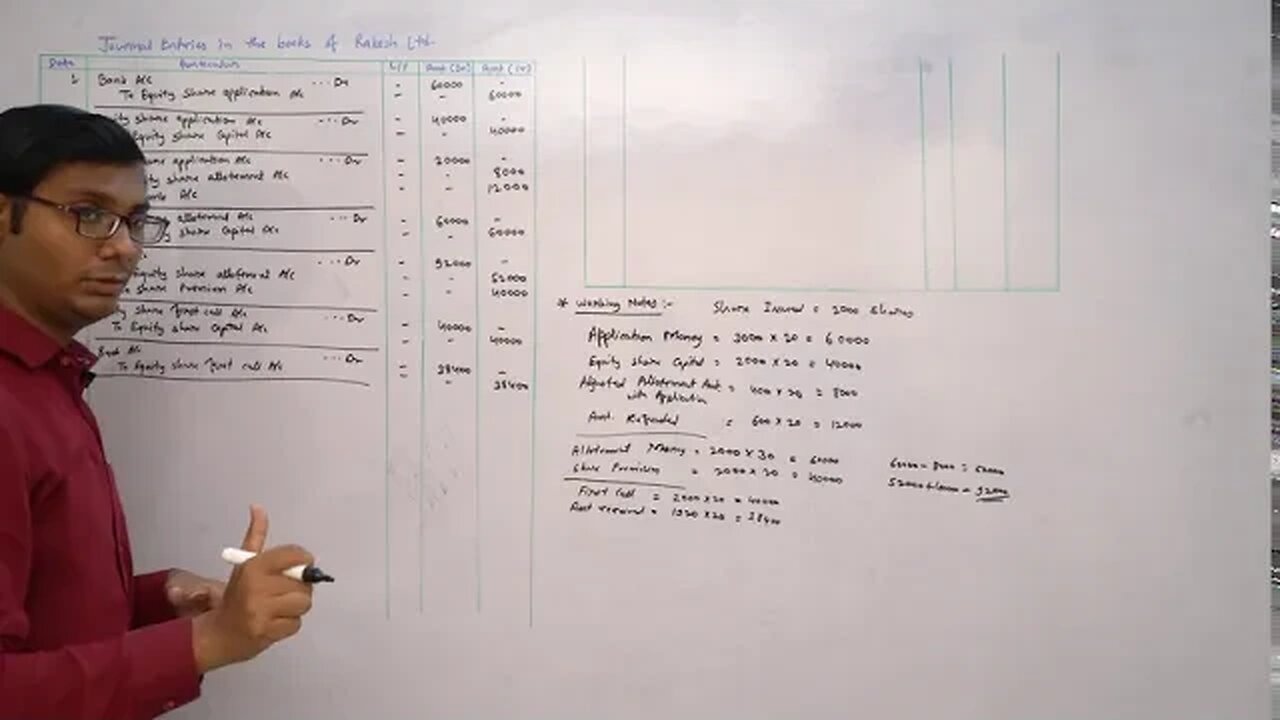 Journal Entries in the books of Rakesh Ltd.
Date Particulars L/F Amt (Dr) Amt (Cr)
1. Bank A/c ... Dr - 60000 -
To Equity share application A/c - - 60000
ity share application A/c ... Dr - 40000 -
Equity share Capital A/c - - 40000
application A/c ... Dr - 20000 -
ity share allotement A/c - - 8000
A/c - - 12000
allotement A/c ... Dr - 60000 -
share Capital A/c - - 60000
... Dr - 92000 -
quity share allotement A/c - - 52000
share Premium A/c - - 40000
ity share first call A/c ... Dr - 40000 -
To Equity share Capital A/c - - 40000
Bank A/c ... Dr - 38400 -
To Equity share first call A/c - - 38400
* Working Notes :- Share Issued = 2000 shares
Application Money = 3000 x 20 = 60000
Equity share Capital = 2000 x 20 = 40000
Adjusted Allotement Amt = 400 x 20 = 8000
with Application
Amt. Refunded = 600 x 20 = 12000
Allotement Money = 2000 x 30 = 60000
Share Premium = 2000 x 20 = 40000
60000 - 8000 = 52000
52000 + 40000 = 92000
First Call = 2000 x 20 = 40000
Amt received = 1920 x 20 = 38400